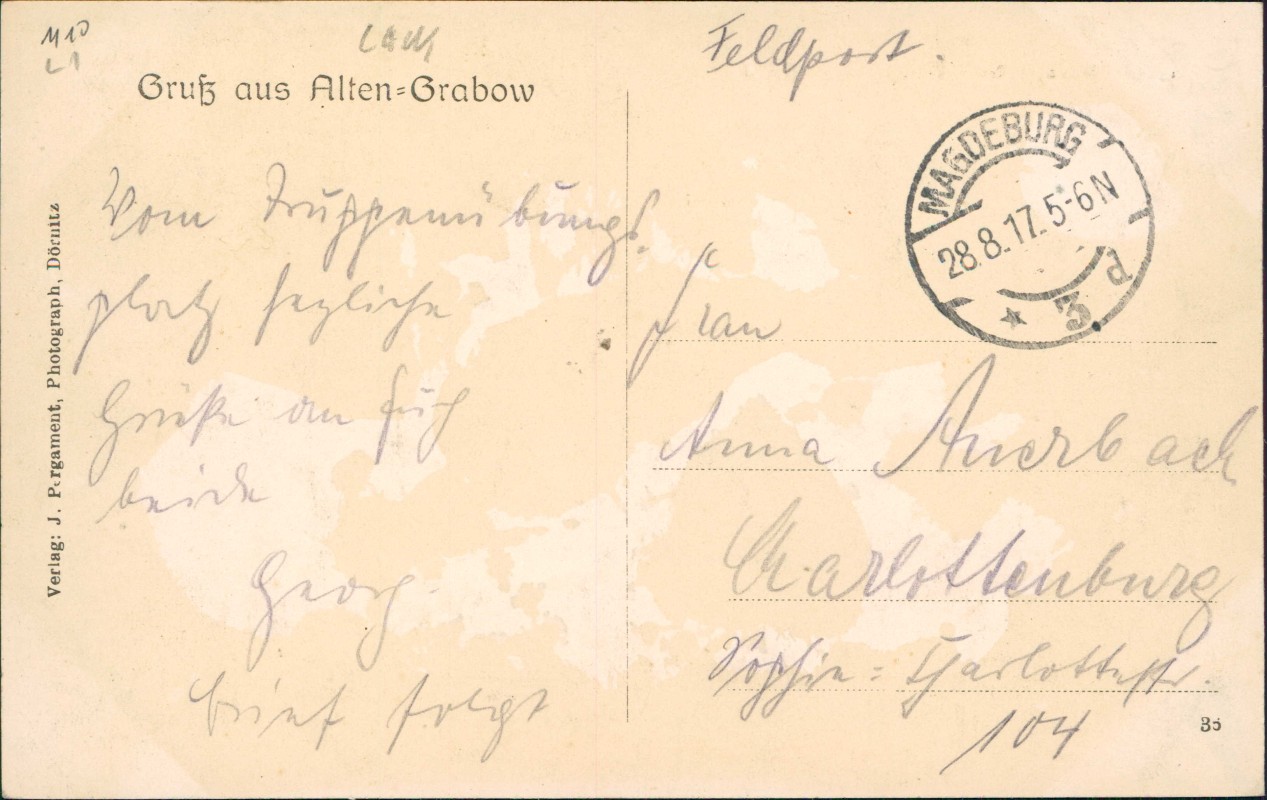 Gruß aus Alten-Grabow
Verlag: J. Pergament, Photograph, Dörnitz
Vom Truppenübungs-
platz herzliche
Grüße an Euch
beide
Georg.
Brief folgt
Feldpost.
MAGDEBURG
28.8.17. 5-6 N
* 3 d
Frau
Anna Auerbach
Charlottenburg
Sophie-Charlottestr.
104
35